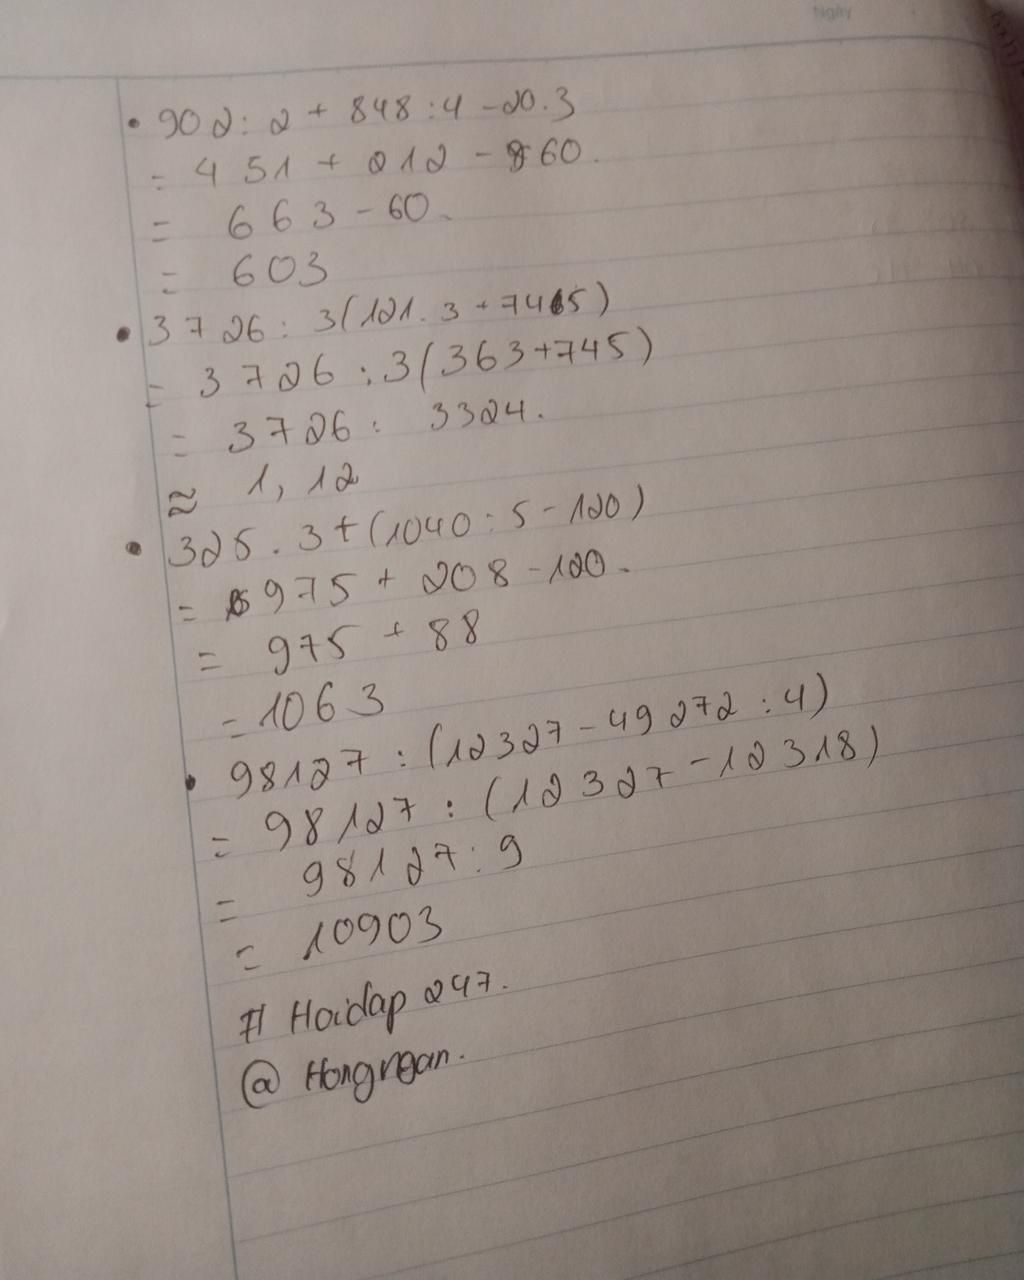 Ngày
• 902 : 2 + 848 : 4 - 20 . 3
= 451 + 212 - 60.
= 663 - 60.
= 603
• 3726 : 3(121 . 3 + 745)
= 3726 : 3(363 + 745)
= 3726 : 3324.
≈ 1,12
• 325 . 3 + (1040 : 5 - 120)
= 975 + 208 - 120.
= 975 + 88
= 1063
• 98127 : (12327 - 49272 : 4)
= 98127 : (12327 - 12318)
= 98127 : 9
= 10903
# Hoidap 247.
@ Hongngan.